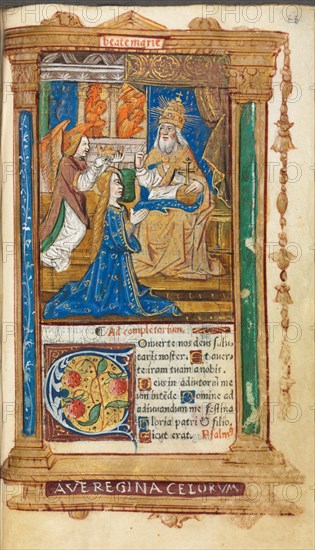 beate marie
Ad completorium.
Converte nos deus salu
taris noster. Et aver
te iram tuam a nobis.
Deus in adiutoriũ me
um intẽde. Domine ad
adiuvandum me festina
Gloria patri & filio.
Sicut erat. Psalmꝰ
AVE REGINA CELORVM